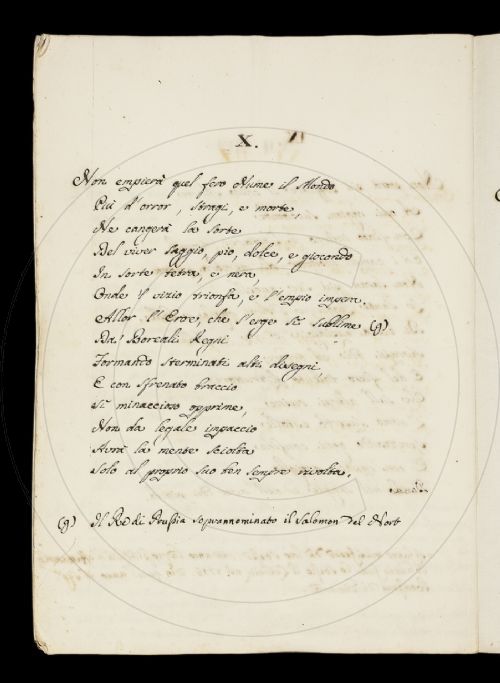 X.
Non empierà quel fero Nume il Mondo
Più d'orror, stragi, e morte,
Ne cangerà la sorte
Del viver saggio, pio, dolce, e giocondo
In sorte tetra, e nera,
Onde 'l vizio trionfa, e l'empio impera.
Allor l'Eroe, che s'erge sì sublime (g)
Da' Boreali Regni
Formando sterminati alti disegni,
E con sfrenato braccio
Sì minaccioso opprime,
Non da legale impaccio
Avrà la mente sciolta
Solo al proprio suo ben sempre rivolta.
(g) Il Re di Prussia soprannominato il Salomon del Nort